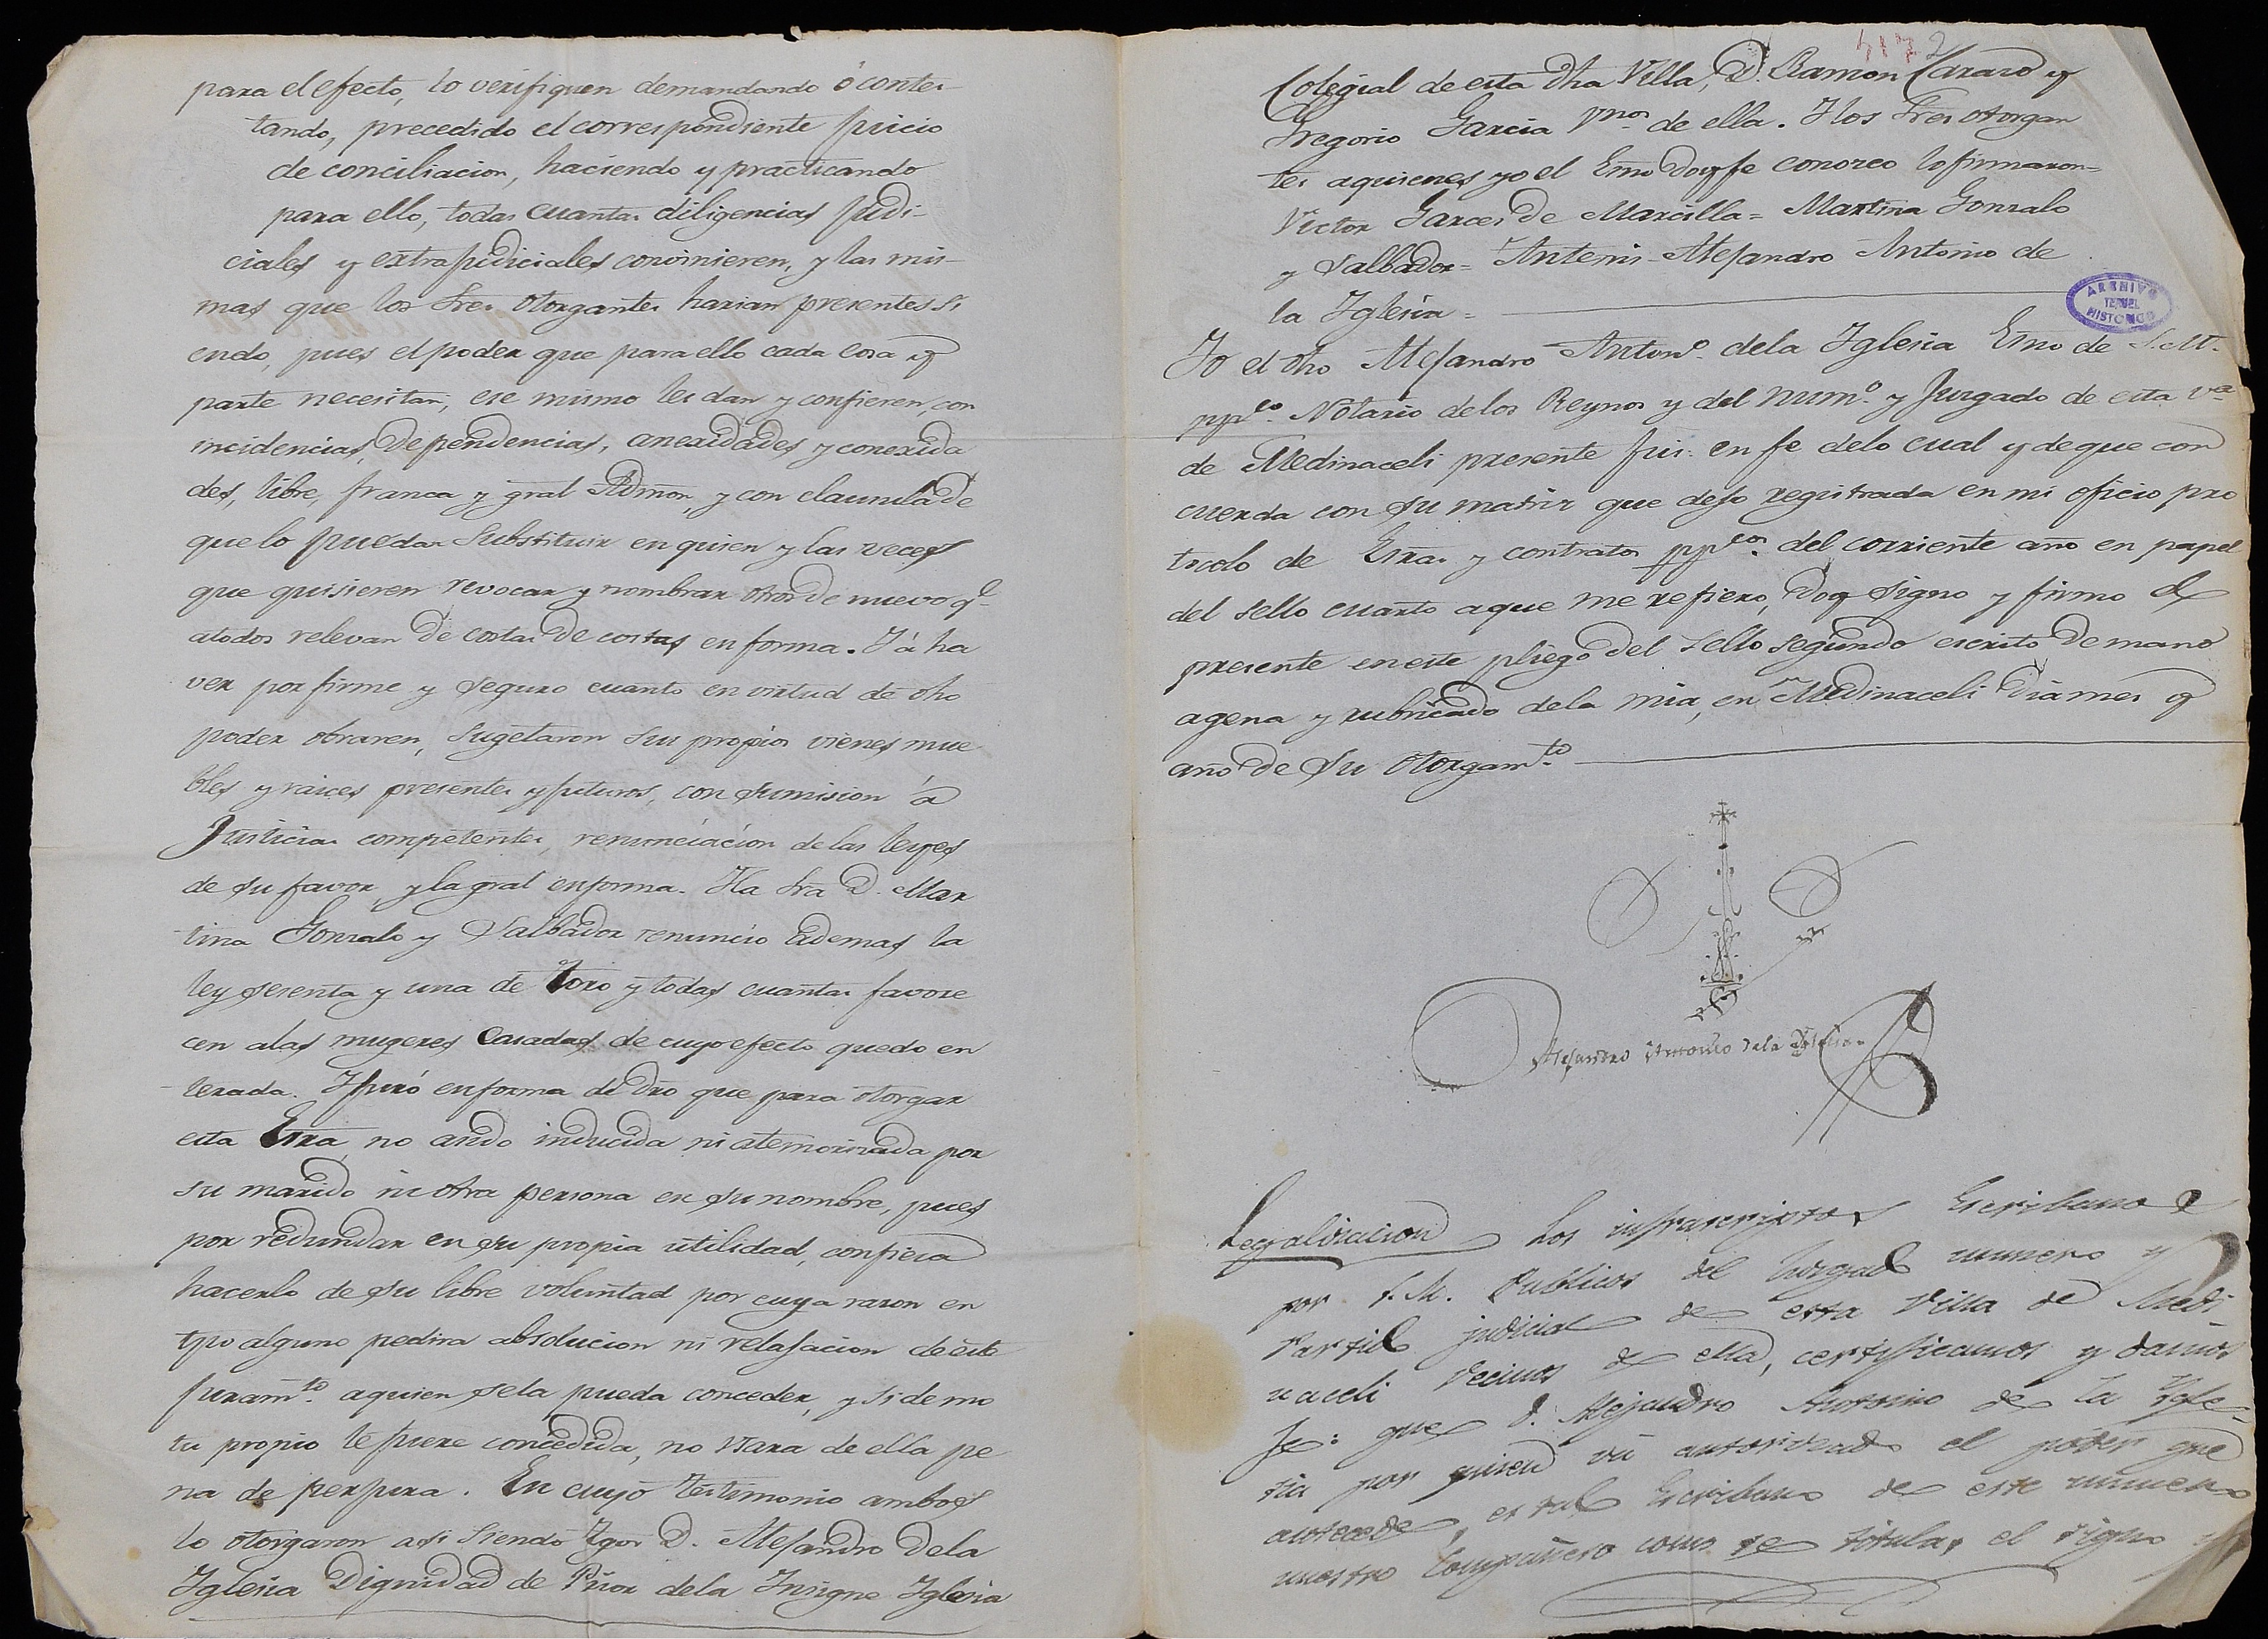 para el efecto, lo verifiquen demandando ó contes-
tando, precedido el correspondiente juicio
de conciliacion, haciendo y practicando
para ello, todas cuantas diligencias judi-
ciales y extrajudiciales convinieren, y las mis-
mas que los Sres otorgantes harian presentes si
endo, pues el poder que para ello cada cosa y
parte necesitan, ese mismo les dan y confieren, con
incidencias, dependencias, anexidades y conexida
des, libre, franca y gral Admon, y con clausula de
que lo puedan substituir en quien y las veces
que quisieren revocar y nombrar otros de nuevo q.e
a todos relevan de costas de costas en forma. Y á ha
ver por firme y seguro cuanto en virtud de dho
poder obraren, sugetaron sus propios vienes mue
bles y raices presentes y futuros, con sumision á
Justicias competentes, renunciacion de las leyes
de su favor, y la gral en forma. Y la Sra D. Mar
tina Gonzalo y Salbador renuncio ademas la
ley sesenta y una de Toro y todas cuantas favore
cen a las mugeres casadas de cuyo efecto quedo en
terada. Y juró en forma de dro que para otorgar
esta Esra, no a sido inducida ni atemorizada por
su marido ni otra persona en su nombre, pues
por redundar en su propia utilidad, confiesa
hacerlo de su libre voluntad por cuya razon en
tpo alguno pedira absolucion ni relajacion de este
juram.to a quien se la pueda conceder, y si de mo
tu propio le fuere concedida, no usara de ella pe
na de perjura. En cuyo testimonio ambos
lo otorgaron asi siendo tgos D. Alejandro de la
Iglesia Dignidad de Prior de la Insigne Iglesia
Colegial de esta dha Villa, D. Ramon y
Gregorio Garcia V.nos de ella. Y los Sres otorgan
tes a quienes yo el Esno doy fe conozco lo firmaron=
Victor Garces de Marcilla= Martina Gonzalo
y Salbador= Antemi- Alejandro Antonio de
la Iglesia=
ARCHIVO
TERUEL
HISTORICO
Yo el dho Alejandro Anton.o de la Iglesia Esno de S.M.
pp.co Notario de los Reynos y del num.o y Juzgado de esta V.a
de Medinaceli presente fui: en fe de lo cual y de que con
cuerda con su matriz que dejo registrada en mi oficio pro
tocolo de Esras y contratos pp.cos del corriente año en papel
del sello cuarto a que me refiero, doy signo y firmo el
presente en este pliego del sello segundo escrito de mano
agena y rubricado de la mia, en Medinaceli dia mes y
año de su otorgam.to
Alejandro Antonio de la Iglesia
Legalizacion Los infrascriptos Escribanos
por S.M. Publicos del Juzgado numero y
Partido judicial de esta Villa de Medi-
naceli vecinos de ella, certificamos y damos
fe: que D. Alejandro Antonio de la Igle-
sia por quien va autorizado el poder que
antecede, es tal Escribano de este numero
nuestro compañero como se titula, el signo